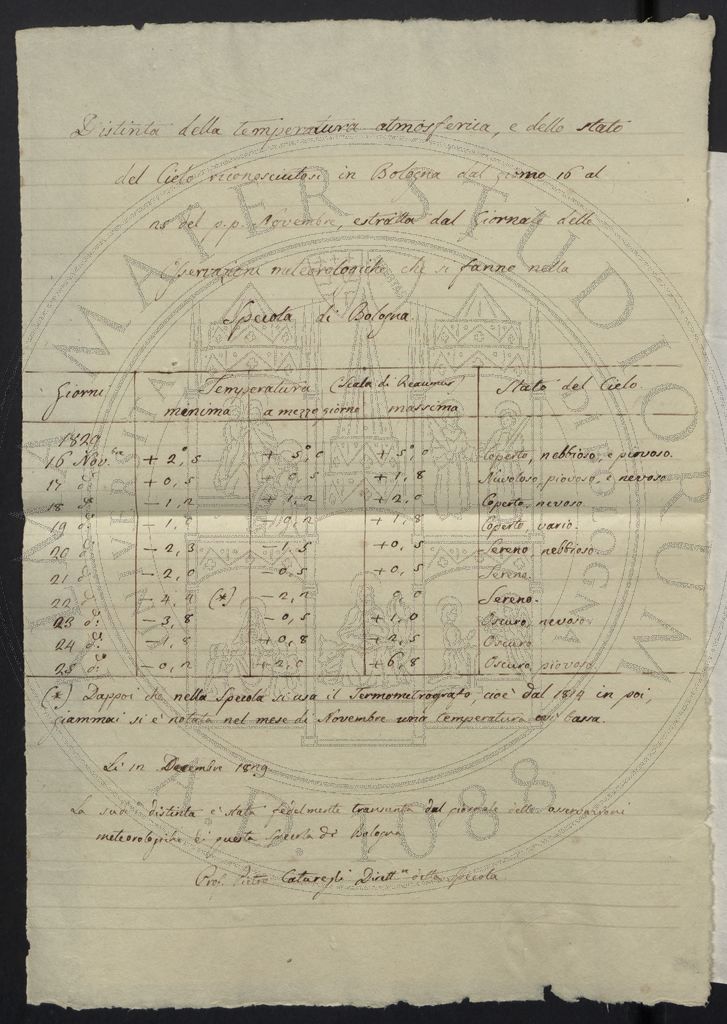 Distinta della temperatura atmosferica, e dello stato
del Cielo riconosciutosi in Bologna dal giorno 16 al
25 del p.p. Novembre, estratta dal Giornale delle
Osservazioni meteorologiche che si fanno nella
Specola di Bologna.
Giorni Temperatura (Scala di Reaumur Stato del Cielo.
menima a mezzo giorno massima
1829
16 Nov.bre + 2°,5 + 5°,0 + 5°,0 Coperto, nebbioso, e piovoso.
17 d.o + 0,5 + 1,8 Nuvoloso, piovoso, e nevoso
18 d.o - 1,2 + 1,2 + 2,0 Coperto, nevoso.
19 d.o - 1,0 0,2 + 1,8 Coperto, vario.
20 d.o - 2,3 - 1,5 + 0,5 Sereno, nebbioso.
21 d.o - 2,0 - 0,5 + 0,5 Sereno.
22 d.o - 4,4 (*) - 2,2 0,0 Sereno.
23 d.o - 3,8 - 0,5 + 1,0 Oscuro, nevoso
24 d.o - 1,8 + 0,8 + 2,5 Oscuro
25 d.o - 0,2 + 2,0 + 6,8 Oscuro, piovoso
(*) Dappoi che nella Specola si usa il Termometrografo, cioè dal 1814 in poi,
giammai si è notata nel mese di Novembre una temperatura così bassa.
Li 12 Decembre 1829
La sud.a distinta è stata fedelmente transunta dal giornale delle osservazioni
meteorologiche di questa Specola di Bologna
Prof. Pietro Caturegli Dirett.re della Specola
ALMA MATER STUDIORUM
A.D. 1088